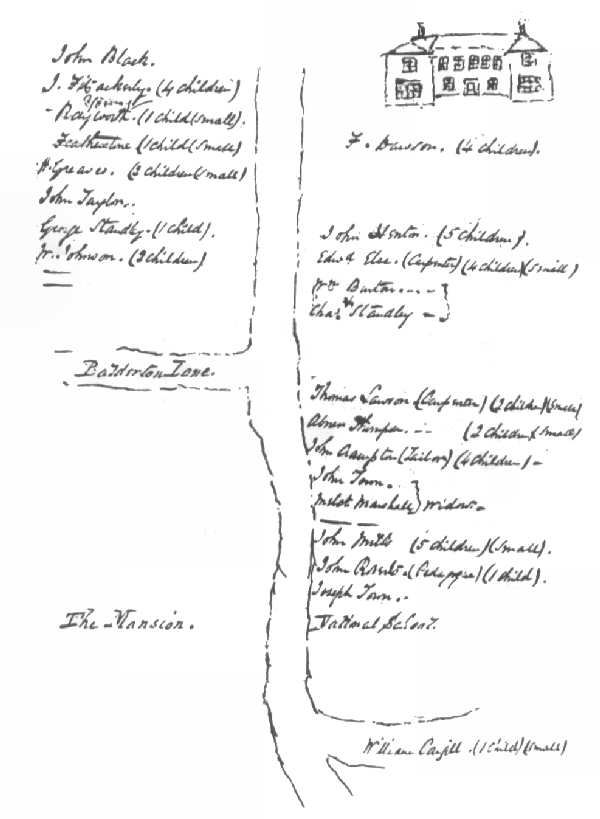 John Black.
J. Fitzackerly. (4 children)
- Rayworth. (1 child (small).
Featherstne (1 child (small)
H. Greaves. (2 children (small)
John Taylor..
George Standley. (1 child).
W. Johnson. (3 children)
Balderton Lane.
The Mansion.
F. Dawson. (4 children).
John Henton. (5 children).
Edwd Else. (Carpenter) (4 children) (small)
Wm Burton....
Chas Standley -
Thomas Lawson (Carpenter) (2 children) (small)
Abner Thompson. .. (2 children) (small)
John Crampton (Tailor) (4 children) -
John Town.
Marshall} Widows -
John Mills (5 children) (small).
John Roberts (Pedagogue) (1 child).
Joseph Town..
National School.
William Cargill. (1 child) (small)